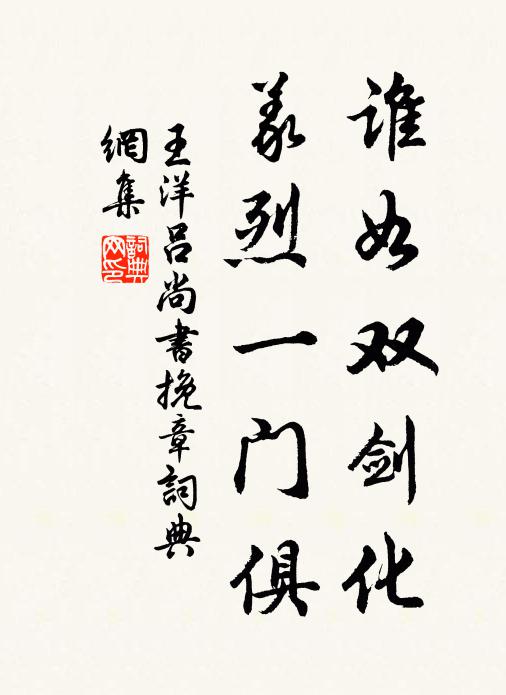 谁如双剑化
義烈一门俱
王洋吕尚書挽章詞典
網集
詞典网印